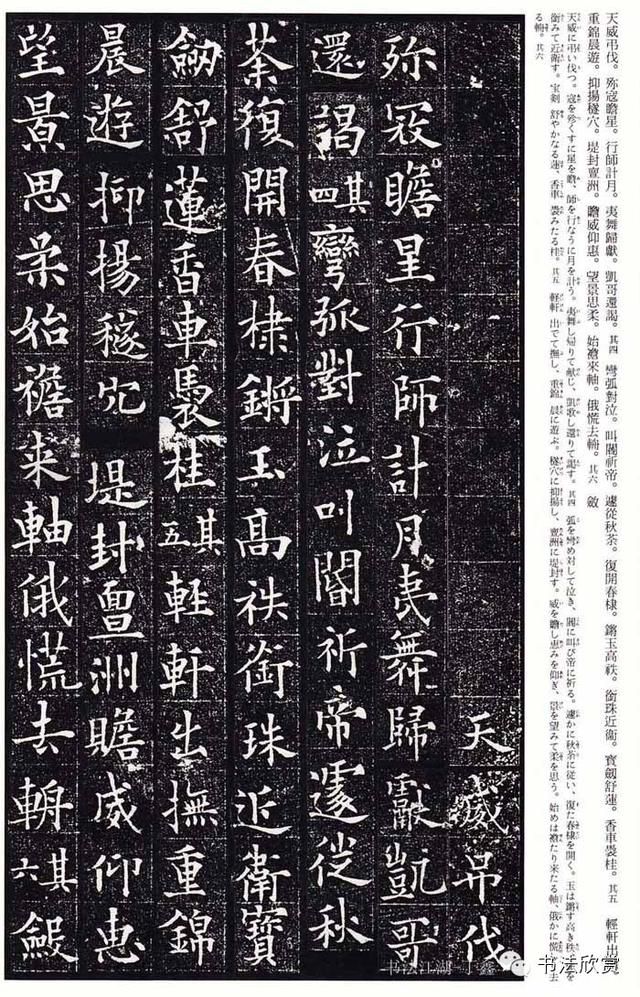 天威弔伐。殄寇瞻星。行師計月。夷舞歸獻。凱哥還謁。其四 彎弧對泣。叫閽祈帝。遽從秋荼。復開春棣。鏘玉高秩。銜珠近衞。寶劒舒蓮。香車裊桂。其五 輕軒出撫。
重錦晨遊。抑揚穟穴。堤封亶洲。瞻威仰惠。望景思柔。始襜來軸。俄慌去輈。其六 斂
天威に弔い伐つ。寇を殄くすに星を瞻、師を行なうに月を計う。夷舞し帰りて献じ、凱歌し還りて謁す。其四 弧を彎め対して泣き、閽に叫び帝に祈る。遽かに秋荼に従い、復た春棣を開く。玉は鏘す高き秩、珠を
銜みて近衛す。宝剣 舒やかなる蓮、香車 裊みたる桂。其五 軽軒 出でて撫し、重錦 晨に遊ぶ。穟穴に抑揚し、亶洲に堤封す。威を瞻し恵みを仰ぎ、景を望みて柔を思う。始めは襜たり来たる軸、俄かに慌し去
る輈。其六
天威弔伐
殄寇瞻星行師計月夷舞歸獻凱哥
還謁其四彎弧對泣叫閽祈帝遽從秋
荼復開春棣鏘玉高秩銜珠近衛寶
劒舒蓮香車裊桂其五輕軒出撫重錦
晨遊抑揚穟穴堤封亶洲瞻威仰惠
望景思柔始襜来軸俄慌去輈其六斂
书法欣赏